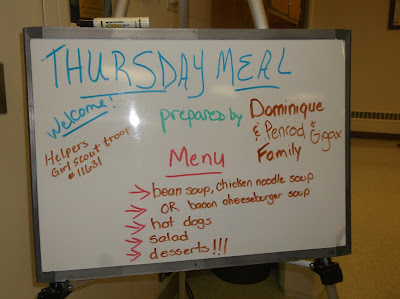 THURSDAY MEAL
Welcome!
Helpers
Girl Scout troop
#11631
prepared by
Dominique
& Penrod & Gigax
Family
Menu
bean soup, chicken noodle soup
OR bacon cheeseburger soup
hot dogs
salad
desserts!!!